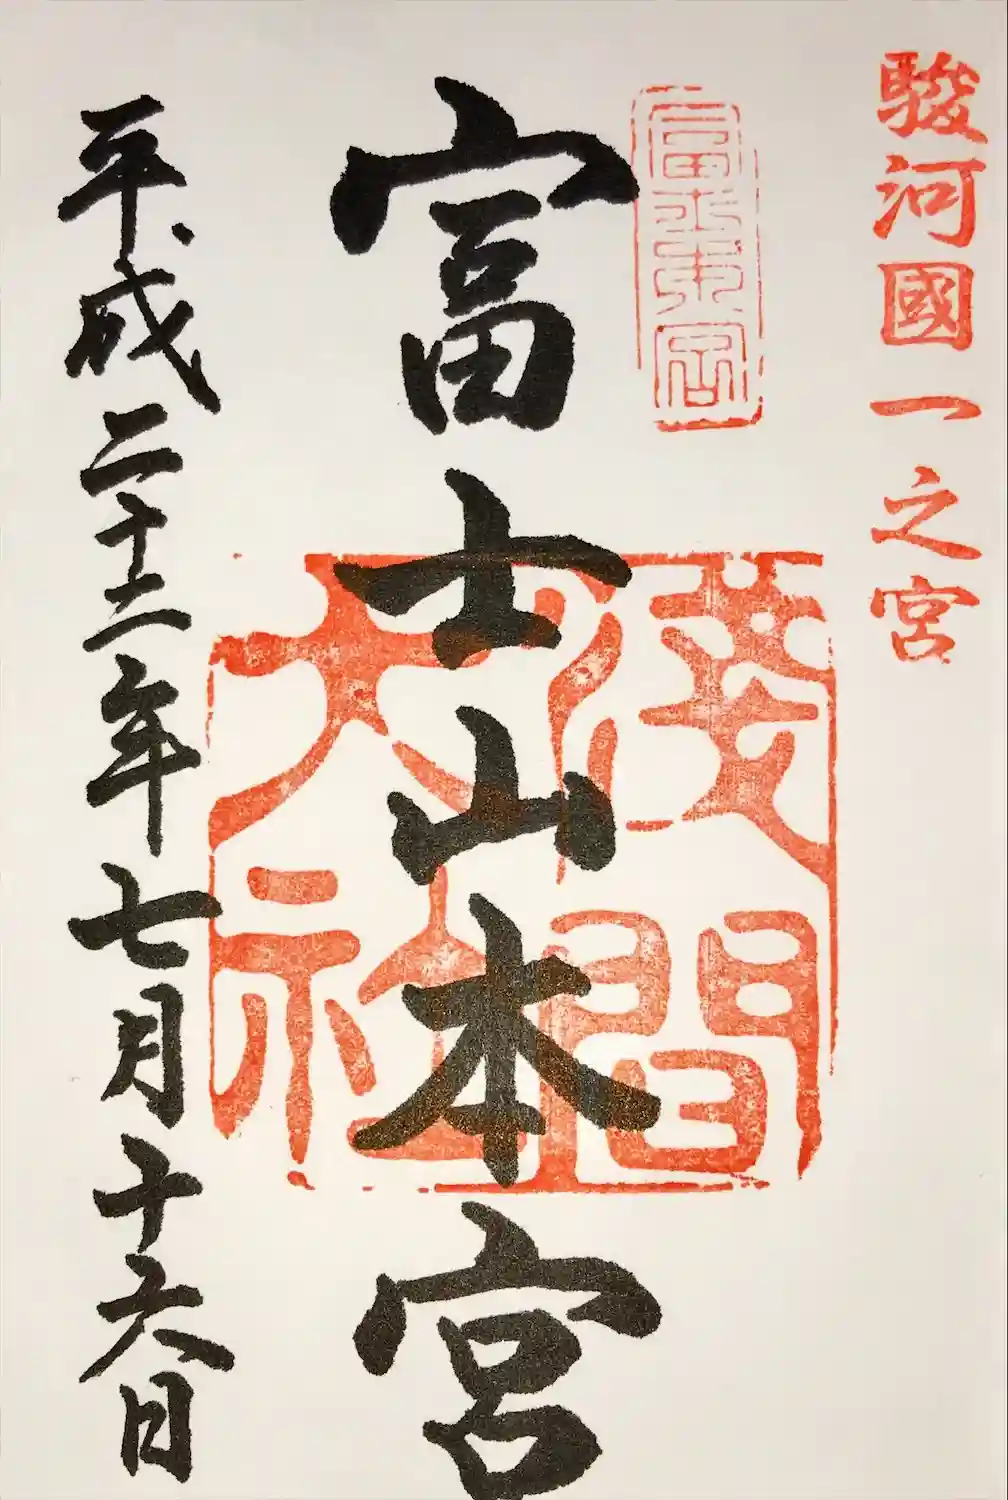 駿河國一之宮
富士山本宮
淺間
大社
平成二十二年七月十六日